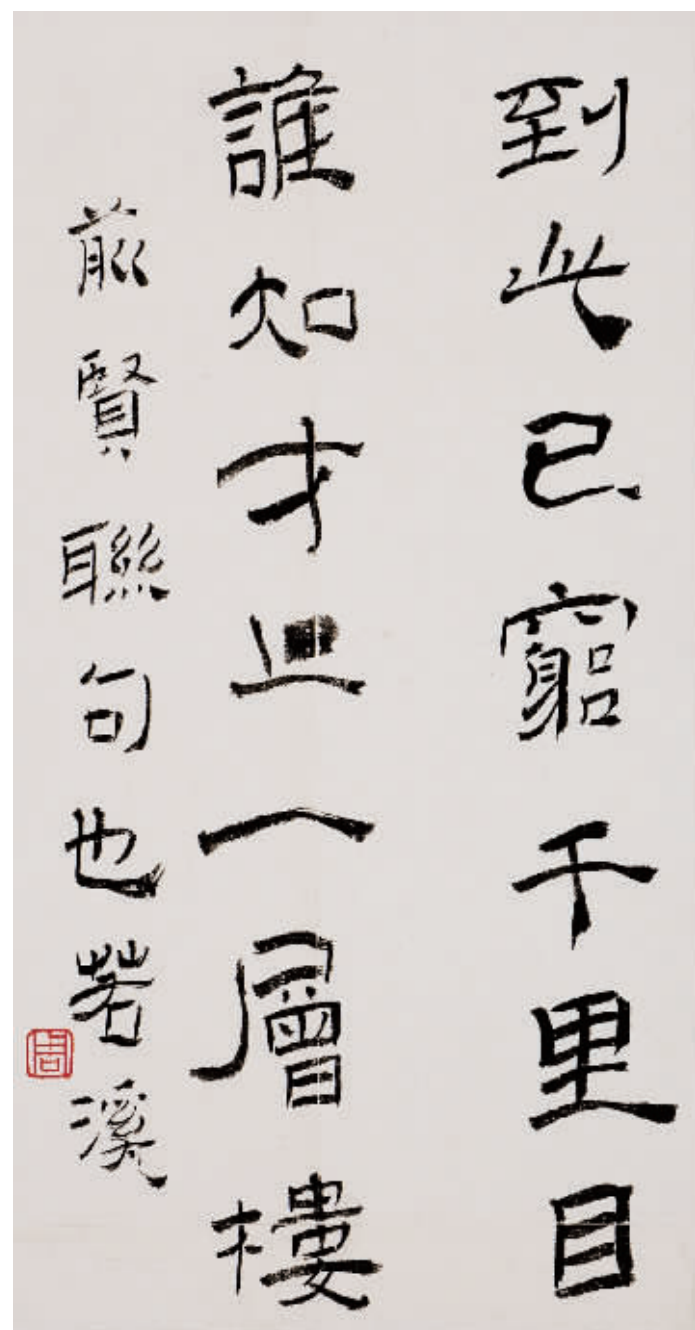 到此已窮千里目
誰知才上一層樓
前賢聯句也若溪
周